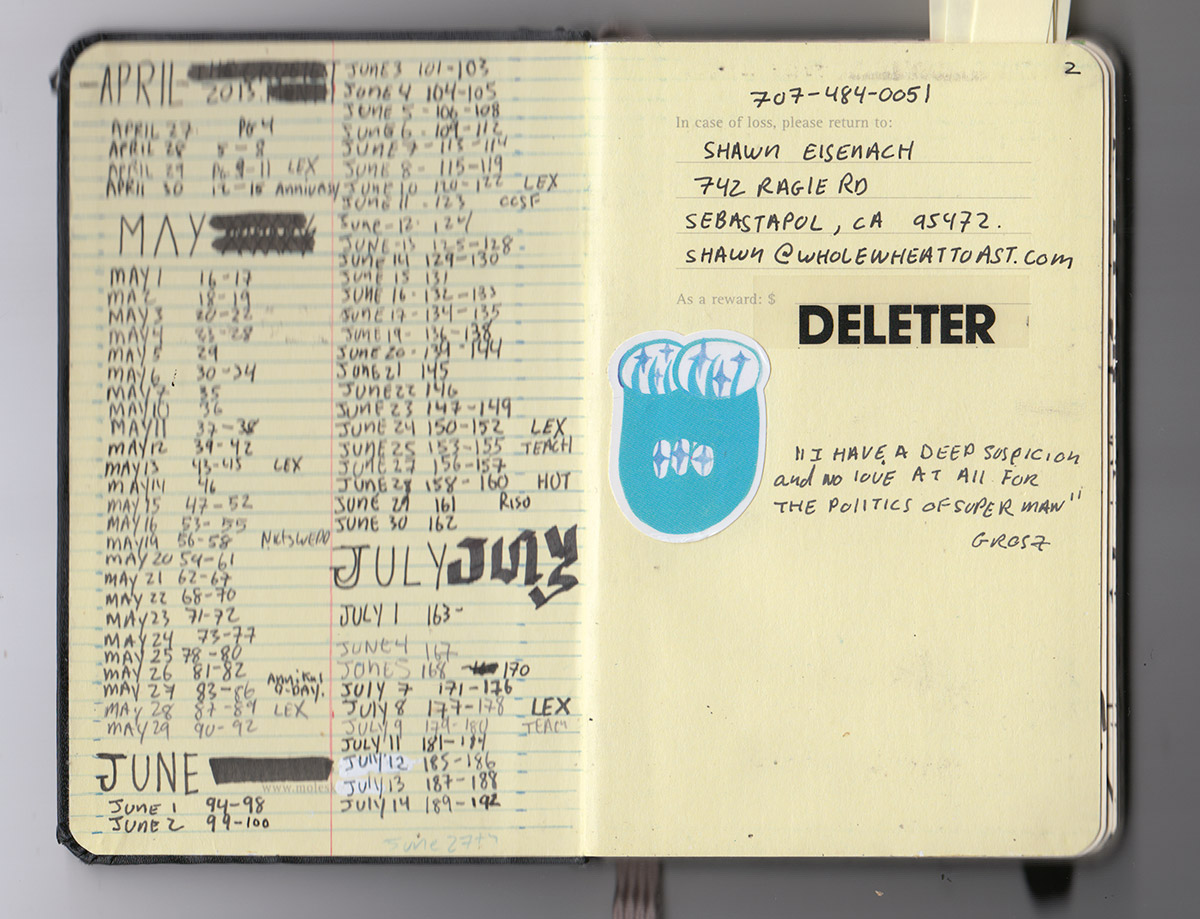 APRIL
2013
APRIL 27 PG 4
APRIL 28 5-8
APRIL 29 PG 9-11 LEX
APRIL 30 12-15
MAY
MAY 1 16-17
MAY 2 18-19
MAY 3 20-22
MAY 4 23-28
MAY 5 29
MAY 6 30-34
MAY 7 35
MAY 10 36
MAY 11 37-38
MAY 12 39-42
MAY 13 43-45 LEX
MAY 14 46
MAY 15 47-52
MAY 16 53-55
MAY 19 56-58
MAY 20 59-61
MAY 21 62-67
MAY 22 68-70
MAY 23 71-72
MAY 24 73-77
MAY 25 78-80
MAY 26 81-82
MAY 27 83-86 B-DAY.
MAY 28 87-89 LEX
MAY 29 90-92
JUNE
www.molesk
JUNE 1 94-98
JUNE 2 99-100
JUNE 3 101-103
JUNE 4 104-105
JUNE 5 - 106-108
JUNE 6 - 109-112
JUNE 7 - 113-114
JUNE 8 - 115-119
JUNE 10 120-122 LEX
JUNE 11 - 123 CCSF
JUNE-12- 124
JUNE-13 125-128
JUNE 14 129-130
JUNE 15 131
JUNE 16-132-133
JUNE 17-134-135
JUNE 19-136-138
JUNE 20-139-144
JUNE 21 145
JUNE 22 146
JUNE 23 147-149
JUNE 24 150-152 LEX
JUNE 25 153-155 TEACH
JUNE 27 156-157
JUNE 28 158-160 HOT
JUNE 29 161 RISO
JUNE 30 162
JULY JULY
JULY 1 163-
JUNE 4 167
JUNE 5 168 170
JULY 7 171-176
JULY 8 177-178 LEX
JULY 9 179-180 TEACH
JULY 11 181-184
JULY 12 185-186
JULY 13 187-188
JULY 14 189-192
June 27th
2
707-484-0051
In case of loss, please return to:
SHAWN EISENACH
742 RAGLE RD
SEBASTAPOL, CA 95472.
SHAWN@WHOLEWHEATTOAST.COM
As a reward: $
DELETER
"I HAVE A DEEP SUSPICION
and NO LOVE AT ALL FOR
THE POLITICS OF SUPER MAN"
GROSZ